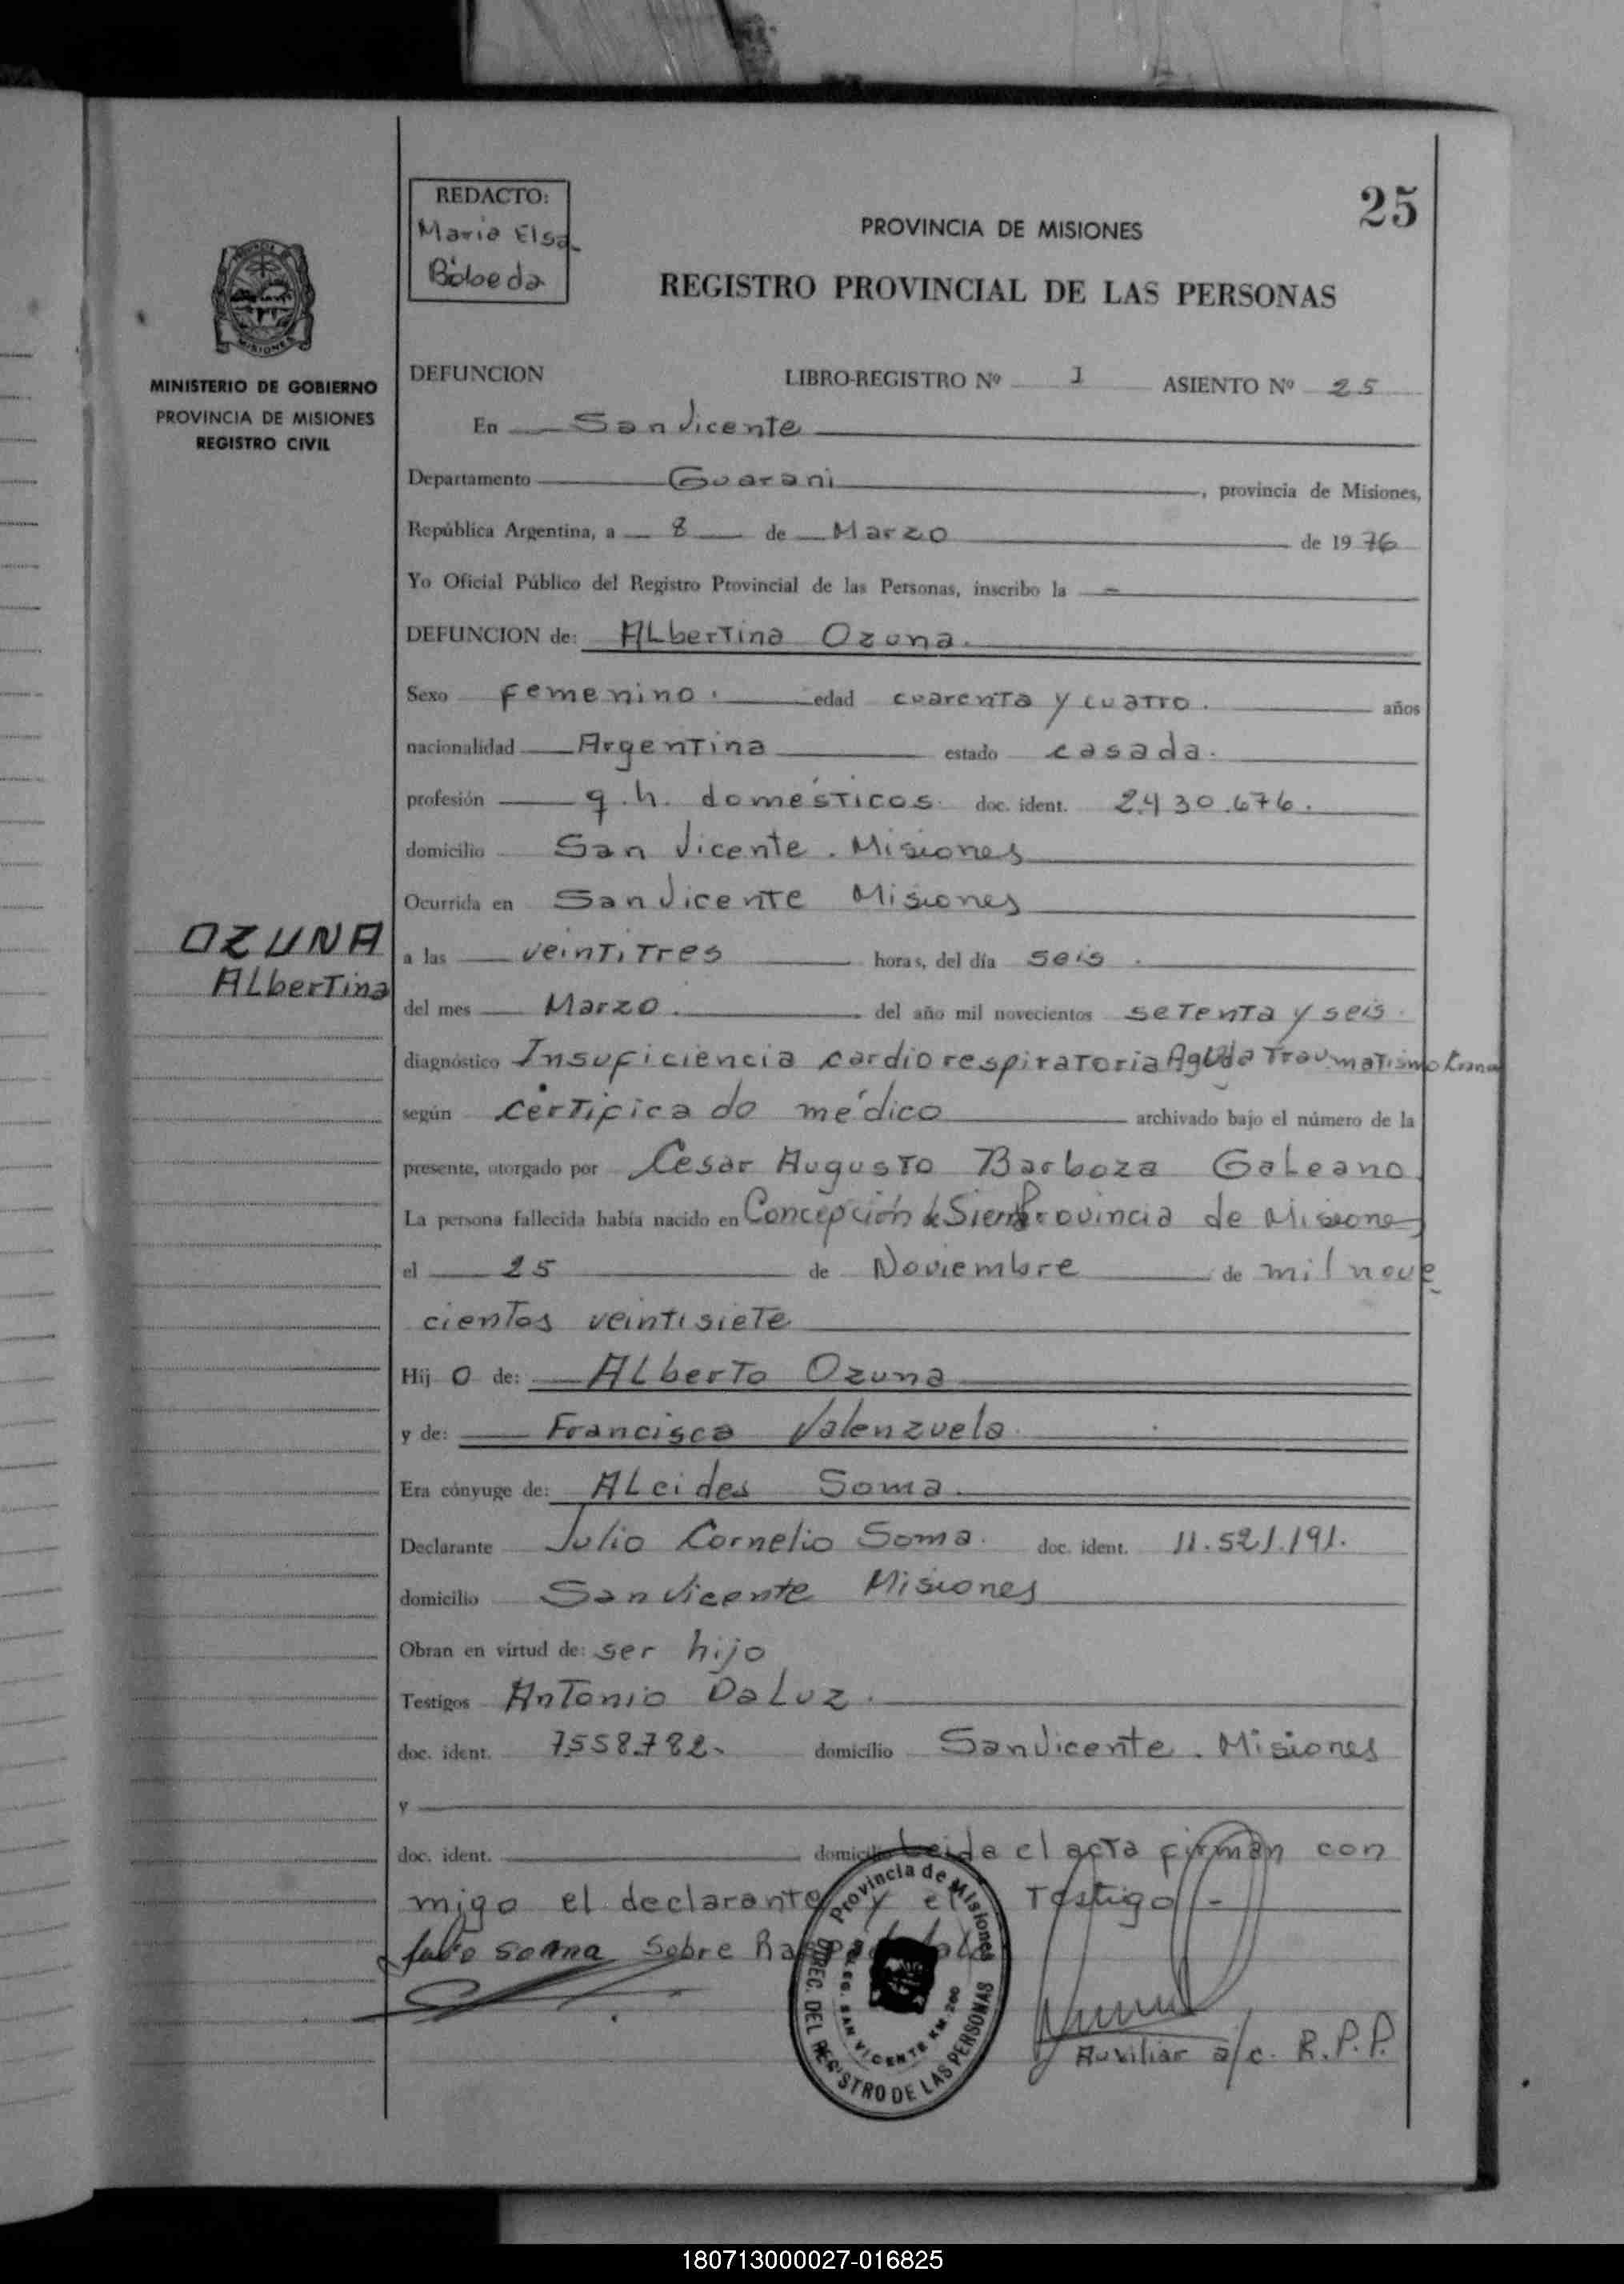 25
REDACTO:
Maria Elsa
Bóbeda
PROVINCIA DE MISIONES
REGISTRO PROVINCIAL DE LAS PERSONAS
MISIONES
MINISTERIO DE GOBIERNO
PROVINCIA DE MISIONES
REGISTRO CIVIL
DEFUNCION LIBRO-REGISTRO Nº 1 ASIENTO Nº 25
En San Vicente
Departamento Guarani, provincia de Misiones,
República Argentina, a 8 de Marzo de 1976
Yo Oficial Público del Registro Provincial de las Personas, inscribo la
DEFUNCION de: ALbertina Ozuna.
Sexo femenino. edad cuarenta y cuatro. años
nacionalidad Argentina estado casada.
profesión q.h. domésticos. doc. ident. 2.430.676.
domicilio San Vicente. Misiones
Ocurrida en San Vicente Misiones
OZUNA
ALbertina
a las veintitres horas, del día seis.
del mes Marzo. del año mil novecientos setenta y seis.
diagnóstico Insuficiencia cardiorespiratoria Aguda Traumatismo
según certificado médico archivado bajo el número de la
presente, otorgado por Cesar Augusto Barboza Galeano
La persona fallecida había nacido en Concepción de Sierra Provincia de Misiones
el 25 de Noviembre de mil nove
cientos veintisiete
Hij o de: ALberto Ozuna
y de: Francisca Valenzuela
Era cónyuge de: ALcides Soma.
Declarante Julio Cornelio Soma. doc. ident. 11.521.191.
domicilio San Vicente Misiones
Obran en virtud de: ser hijo
Testigos Antonio DaLuz.
doc. ident. 7558.782. domicilio San Vicente. Misiones
y
doc. ident. domicilio Leida el acta firman con
migo el declarante y el Testigo -
Julio soma Sobre
Provincia de Misiones
DIREC. DEL REGISTRO DE LAS PERSONAS
DELEG. SAN VICENTE KM. 260
Auxiliar a/c. R.P.P.
180713000027-016825